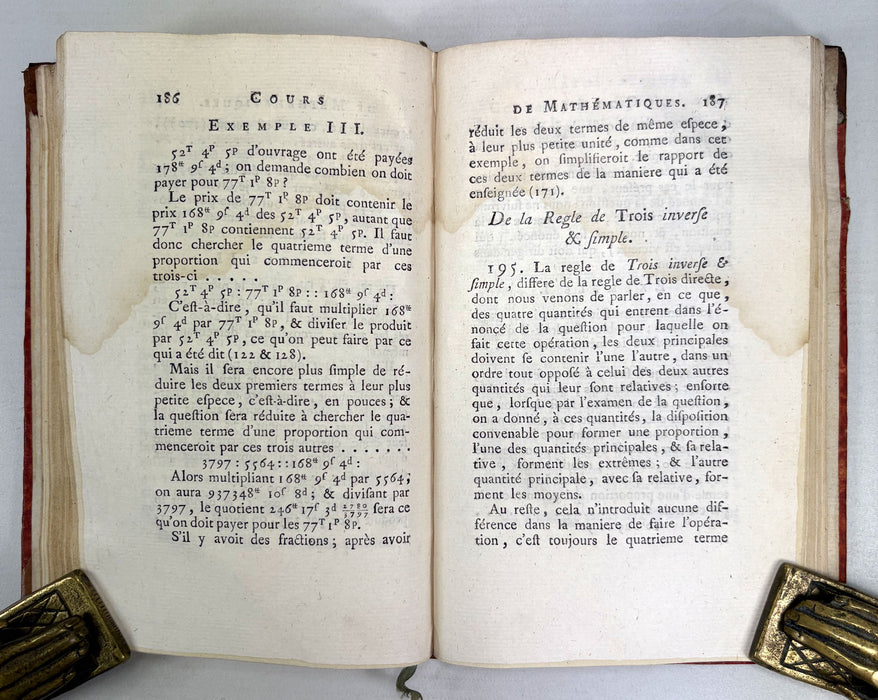 186 COURS
EXEMPLE III.
52ᵀ 4ᴾ 5ᴾ d'ouvrage ont été payées
178ᵗᵗ 9ſ 4ᵈ; on demande combien on doit
payer pour 77ᵀ 1ᴾ 8ᴾ?
Le prix de 77ᵀ 1ᴾ 8ᴾ doit contenir le
prix 168ᵗᵗ 9ſ 4ᵈ des 52ᵀ 4ᴾ 5ᴾ, autant que
77ᵀ 1ᴾ 8ᴾ contiennent 52ᵀ 4ᴾ 5ᴾ. Il faut
donc chercher le quatrieme terme d'une
proportion qui commenceroit par ces
trois-ci . . . . .
52ᵀ 4ᴾ 5ᴾ : 77ᵀ 1ᴾ 8ᴾ : : 168ᵗᵗ 9ſ 4ᵈ :
C'eſt-à-dire, qu'il faut multiplier 168ᵗᵗ
9ſ 4ᵈ par 77ᵀ 1ᴾ 8ᴾ, & diviſer le produit
par 52ᵀ 4ᴾ 5ᴾ, ce qu'on peut faire par ce
qui a été dit (122 & 128).
Mais il ſera encore plus ſimple de ré-
duire les deux premiers termes à leur plus
petite eſpece, c'eſt-à-dire, en pouces; &
la queſtion ſera réduite à chercher le qua-
trieme terme d'une proportion qui com-
menceroit par ces trois autres . . . . . . .
3797 : 5564 : : 168ᵗᵗ 9ſ 4ᵈ :
Alors multipliant 168ᵗᵗ 9ſ 4ᵈ par 5564,
on aura 937348ᵗᵗ 10ſ 8ᵈ; & diviſant par
3797, le quotient 246ᵗᵗ 17ſ 3ᵈ 2789/3797 ſera ce
qu'on doit payer pour les 77ᵀ 1ᴾ 8ᴾ.
S'il y avoit des fractions; après avoir
DE MATHÉMATIQUES. 187
réduit les deux termes de même eſpece,
à leur plus petite unité, comme dans cet
exemple, on ſimplifieroit le rapport de
ces deux termes de la maniere qui a été
enſeignée (171).
De la Regle de Trois inverſe
& ſimple.
195. La regle de Trois inverſe &
ſimple, differe de la regle de Trois directe,
dont nous venons de parler, en ce que,
des quatre quantités qui entrent dans l'é-
noncé de la queſtion pour laquelle on
fait cette opération, les deux principales
doivent ſe contenir l'une l'autre, dans un
ordre tout oppoſé à celui des deux autres
quantités qui leur ſont relatives; enſorte
que, lorſque par l'examen de la queſtion,
on a donné, à ces quantités, la diſpoſition
convenable pour former une proportion,
l'une des quantités principales, & ſa rela-
tive, forment les extrêmes; & l'autre
quantité principale, avec ſa relative, for-
ment les moyens.
Au reſte, cela n'introduit aucune dif-
férence dans la maniere de faire l'opéra-
tion, c'eſt toujours le quatrieme terme